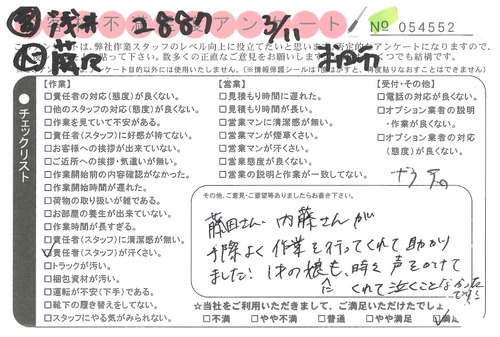 浅井 2887 3/11
不満 アンケート
No 054552
アンケートは、弊社作業スタッフのレベル向上に役立てたいと思います。否定的なアンケートになりますので、
って下さい。数多くの正直なご意見をお願いします。いくつでも結構です。
アンケート目的以外には使用いたしません。(※情報保護シールは1度はがすと、再度貼りなおすことはできません)
チェックリスト
【作業】
□責任者の対応(態度)が良くない。
□他のスタッフの対応(態度)が良くない。
□作業を見ていて不安がある。
□責任者(スタッフ)に好感が持てない。
□お客様への挨拶が出来ていない。
□ご近所への挨拶・気遣いが無い。
□作業開始前の内容確認がなかった。
□作業開始時間が遅れた。
□荷物の取り扱いが雑である。
□お部屋の養生が出来ていない。
□作業時間が長すぎる。
□責任者(スタッフ)に清潔感が無い。
□責任者(スタッフ)が汗くさい。
□トラックが汚い。
□梱包資材が汚い。
□運転が不安(下手)である。
□靴下の履き替えをしてない。
□スタッフにやる気がみられない。
【営業】
□見積もり時間に遅れた。
□見積もり時間が長い。
□営業マンに清潔感が無い。
□営業マンが煙草くさい。
□営業マンが汗くさい。
□営業態度が良くない。
□営業の説明と作業が一致してない。
【受付・その他】
□電話の対応が良くない。
□オプション業者の説明
・作業が良くない。
□オプション業者の対応
(態度)が良くない。
その他、ご意見・ご要望等ありましたらお書き下さい。
藤田さん、内藤さんが
手際よく作業を行ってくれて助かり
ました! 1才の娘にも、時々声をかけて
くれて泣くことなかった
です!
☆当社をご利用いただきまして、ご満足いただけたでしょうか
□不満 □やや不満 □普通 □やや満足 □満足